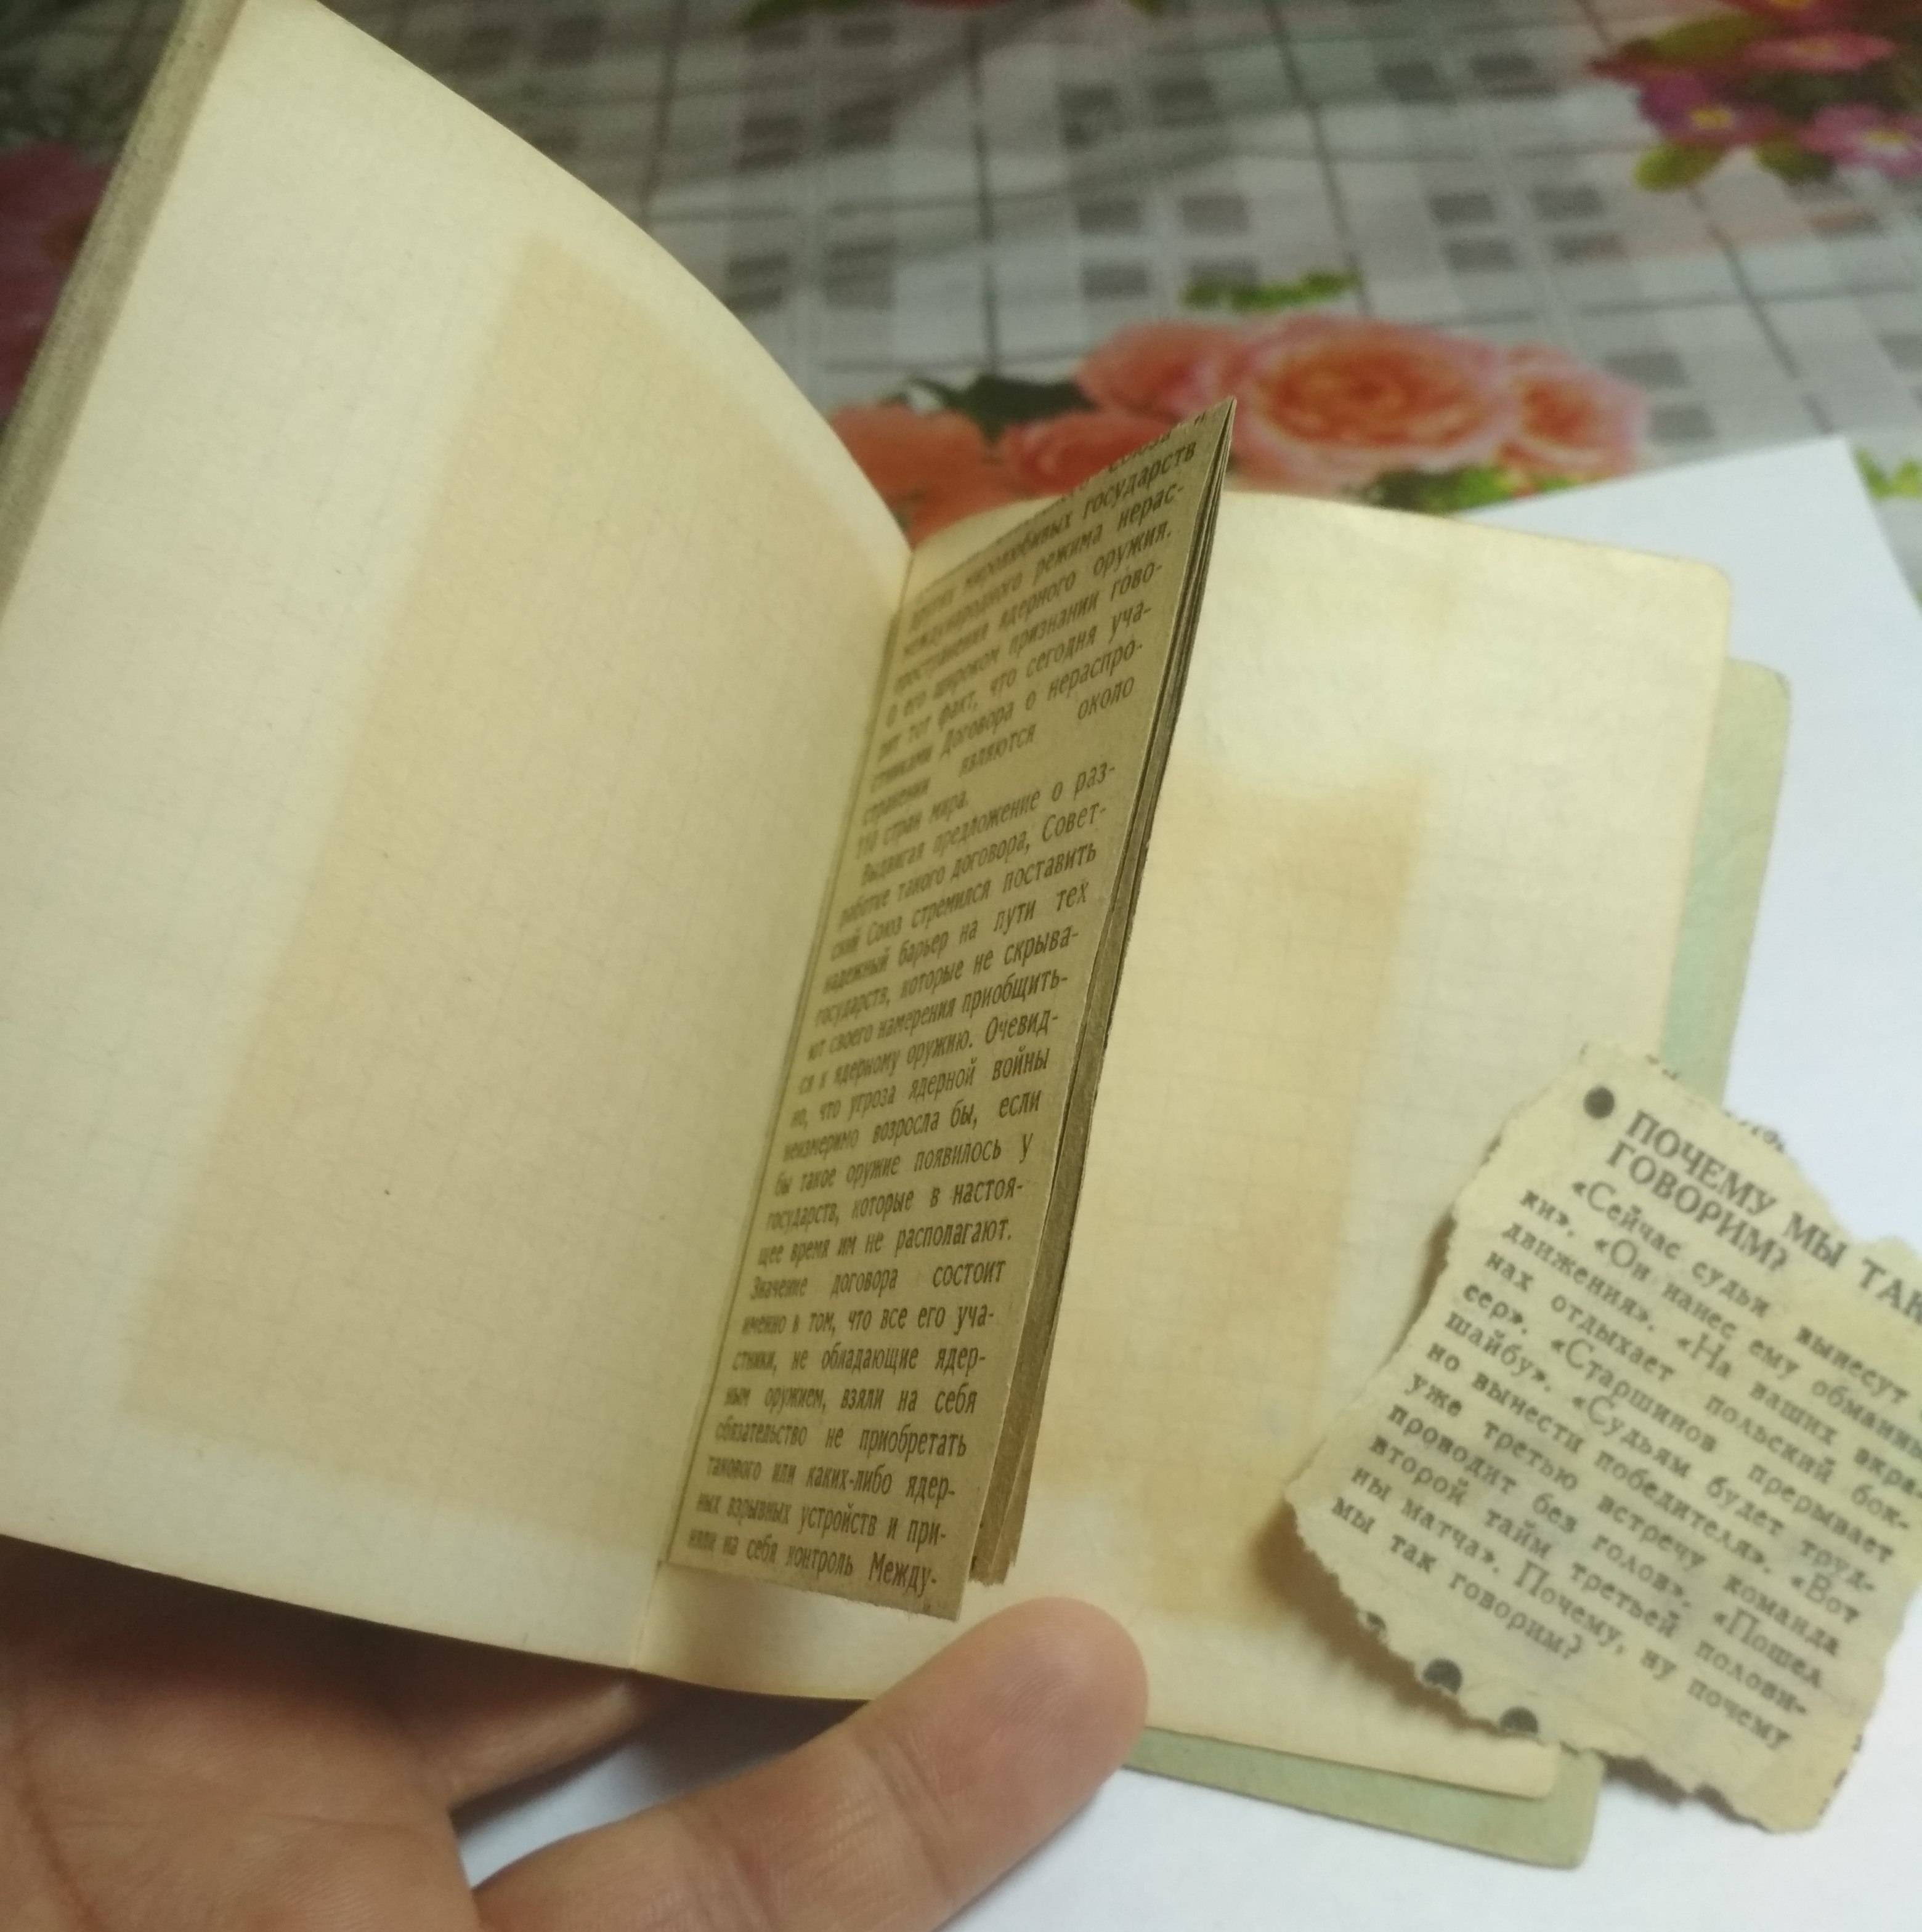 других миролюбивых государств
международного режима нерас-
пространения ядерного оружия.
О его широком признании гово-
рит тот факт, что сегодня уча-
стниками Договора о нераспро-
странении являются около
110 стран мира.
Выдвигая предложение о раз-
работке такого договора, Совет-
ский Союз стремился поставить
надежный барьер на пути тех
государств, которые не скрыва-
ют своего намерения приобщить-
ся к ядерному оружию. Очевид-
но, что угроза ядерной войны
неизмеримо возросла бы, если
бы такое оружие появилось у
государств, которые в настоя-
щее время им не располагают.
Значение договора состоит
именно в том, что все его уча-
стники, не обладающие ядер-
ным оружием, взяли на себя
обязательство не приобретать
такового или каких-либо ядер-
ных взрывных устройств и при-
няли на себя контроль Между-
ПОЧЕМУ МЫ ТАК
ГОВОРИМ?
«Сейчас судьи вынесут
ки». «Он нанес ему обманные
движения». «На ваших экра-
нах отдыхает польский бок-
сер». «Старшинов прерывает
шайбу». «Судьям будет труд-
но вынести победителя». «Вот
уже третью встречу команда
проводит без голов». «Пошел
второй тайм третьей полови-
ны матча». Почему, ну почему
мы так говорим?